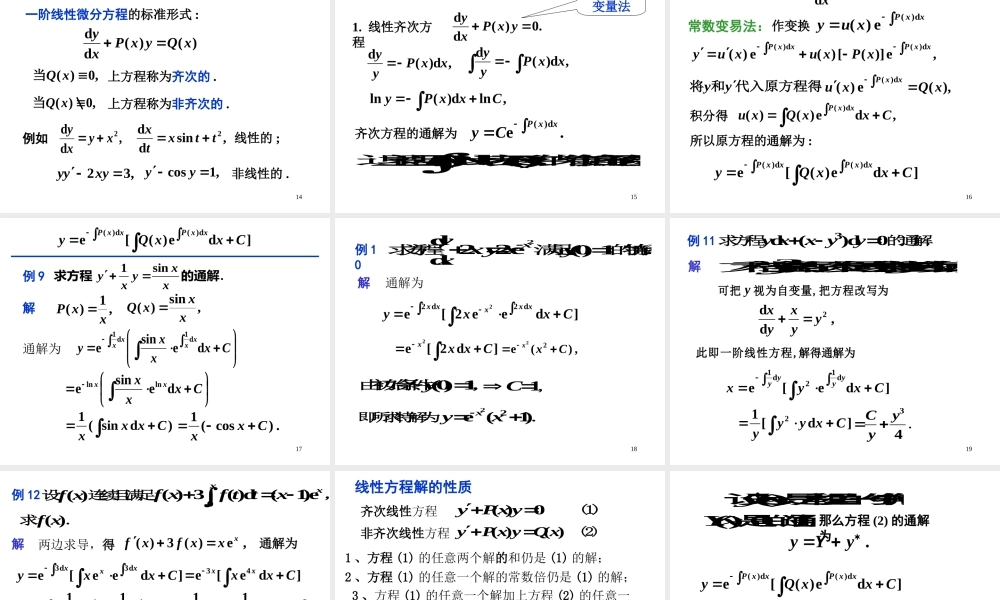 一阶线性微分方程的标准形式 :
dy/dx P(x)y Q(x)
当Q(x) 0, 上方程称为齐次的 .
当Q(x) 0, 上方程称为非齐次的 .
例如 dy/dx y x², dx/dt x sin t t², 线性的 ;
yy′ 2xy 3, y′ cos y 1, 非线性的 .
14
变量法
1. 线性齐次方程
dy/dx P(x)y 0.
dy/y P(x)dx, ∫dy/y ∫P(x)dx,
ln y ∫P(x)dx ln C,
齐次方程的通解为 y Ce^(∫P(x)dx).
15
dx
常数变易法: 作变换 y u(x)e^(∫P(x)dx)
y′ u′(x)e^(∫P(x)dx) u(x)[ P(x)]e^(∫P(x)dx),
将y和y′代入原方程得 u′(x)e^(∫P(x)dx) Q(x),
积分得 u(x) ∫Q(x)e^(∫P(x)dx)dx C,
所以原方程的通解为 :
y e^(∫P(x)dx)[∫Q(x)e^(∫P(x)dx)dx C]
16
y e^(∫P(x)dx)[∫Q(x)e^(∫P(x)dx)dx C]
例 9 求方程 y′ 1/x y sin x/x 的通解.
解 P(x) 1/x, Q(x) sin x/x,
通解为 y e^(∫1/x dx)(∫sin x/x e^(∫1/x dx)dx C)
e^(ln x)(∫sin x/x · e^(ln x)dx C)
1/x(∫sin x dx C) 1/x( cos x C).
17
例 10 求方程 dy/dx 2xy 2xe^(x²) 满足y(0) 1的特解
解 通解为
y e^(∫2xdx)[∫2xe^(x²)·e^(∫2xdx)dx C]
e^(x²)[∫2xdx C] e^(x²)(x² C),
由初始条件y(0) 1, ⇒ C 1,
即所求特解为 y e^(x²)(x² 1).
18
例 11 求方程ydx (x y³)dy 0的通解
解
可把 y 视为自变量, 把方程改写为
dx/dy x/y y²,
此即一阶线性方程, 解得通解为
x e^(∫1/y dy)[∫y²·e^(∫1/y dy)dx C]
1/y[∫y²·ydx C] C/y y³/4.
19
例 12 设f(x)连续且满足f(x) 3∫f(t)dt (x 1)e^x,
求f(x).
解 两边求导，得 f′(x) 3f(x) xe^x, 通解为
y e^(∫3dx)[∫xe^x e^(∫3dx)dx C] e^(3x)[∫xe^(4x)dx C]
线性方程解的性质
齐次线性方程 y′ P(x)y 0 (1)
非齐次线性方程 y′ P(x)y Q(x) (2)
1 、方程 (1) 的任意两个解的和仍是 (1) 的解;
2 、方程 (1) 的任意一个解的常数倍仍是 (1) 的解;
3 、方程 (1) 的任意一个解加上方程 (2) 的任意一
那么方程 (2) 的通解为
y Y y*.
y e^(∫P(x)dx)[∫Q(x)e^(∫P(x)dx)dx C]